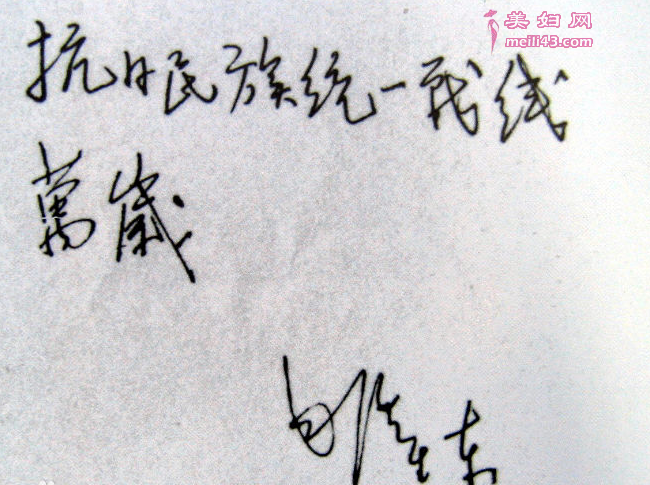 美妇网
meili43.com
抗日民族统一战线
萬歲